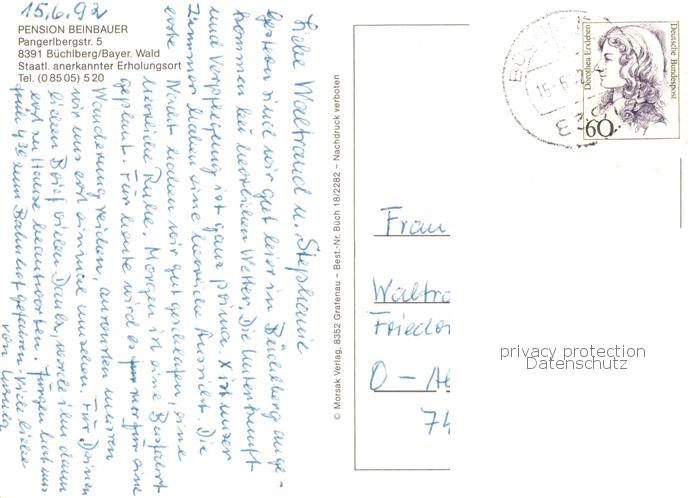 15.6.92
PENSION BEINBAUER
Pangerlbergstr. 5
8391 Büchlberg/Bayer. Wald
Staatl. anerkannter Erholungsort
Tel. (0 85 05) 5 20
Liebe Waltraud u. Stephanie
Gestern sind wir gut hier in Büchlberg ange-
kommen bei herrlichen Wetter. Die Unterkunft
und Verpflegung ist ganz prima. Unser
Zimmer haben eine herrliche Aussicht. Die
erste Nacht haben wir gut geschlafen, eine
herrliche Ruhe. Morgen ist eine Busfahrt
geplant. Für heute wird es nur für eine
Wanderung reichen, ausruhen müssen
wir uns erst einmal. Für Deinen
lieben Brief vielen Dank, werde ihn dann
erst zu Hause beantworten. Jürgen hat uns
früh zum Bahnhof gefahren. Viele liebe
von
© Morsak Verlag, 8352 Grafenau – Best.-Nr. Büch 18/2282 – Nachdruck verboten
Dorothea Erxleben
Deutsche Bundespost
60
15.-6.
Frau
Waltra
Frieder
O –
74
privacy protection
Datenschutz